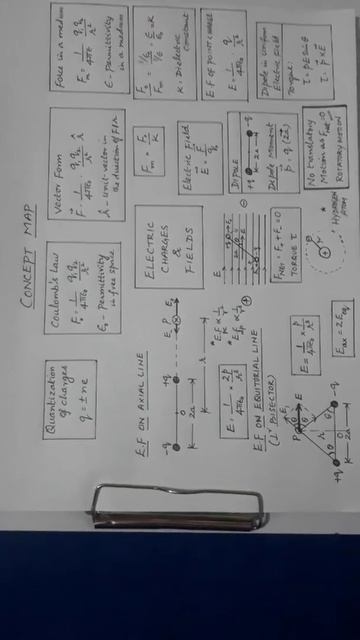 CONCEPT MAP
Quantization
of charges
q = ± ne
Coulomb's Law
F₀ = 1/4πε₀ q₁q₂/r²
ε₀ - Permittivity
in free space
Vector Form
F⃗ = 1/4πε₀ q₁q₂/r² r̂
r̂ - Unit vector in
the direction of
Force in a medium
Fₘ = 1/4πε q₁q₂/r²
ε - Permittivity
in a medium
E.F ON AXIAL LINE
-q O +q P
2a
r
E = 1/4πε₀ × 2p/r³
ELECTRIC
CHARGES
&
FIELDS
Fₘ = F₀/K
K : Dielectric
Constant
Electric Field
E⃗ = F⃗/q
E.F OF POINT CHARGE
E = 1/4πε₀ q/r²
E.F ON EQUITORIAL LINE
(⊥r BISECTOR)
E = 1/4πε₀ × p/r³
Eax = 2Eeq
+q O -q
2a
DIPOLE
+q 2a -q
Dipole Moment
p = q (2a)
Dipole in Uniform
Electric Field
Torque :
τ = pE sin θ
τ⃗ = p⃗ × E⃗
TORQUE τ
No translatory
Motion as Fnet = 0
ROTATORY MOTION
HYDROGEN
ATOM